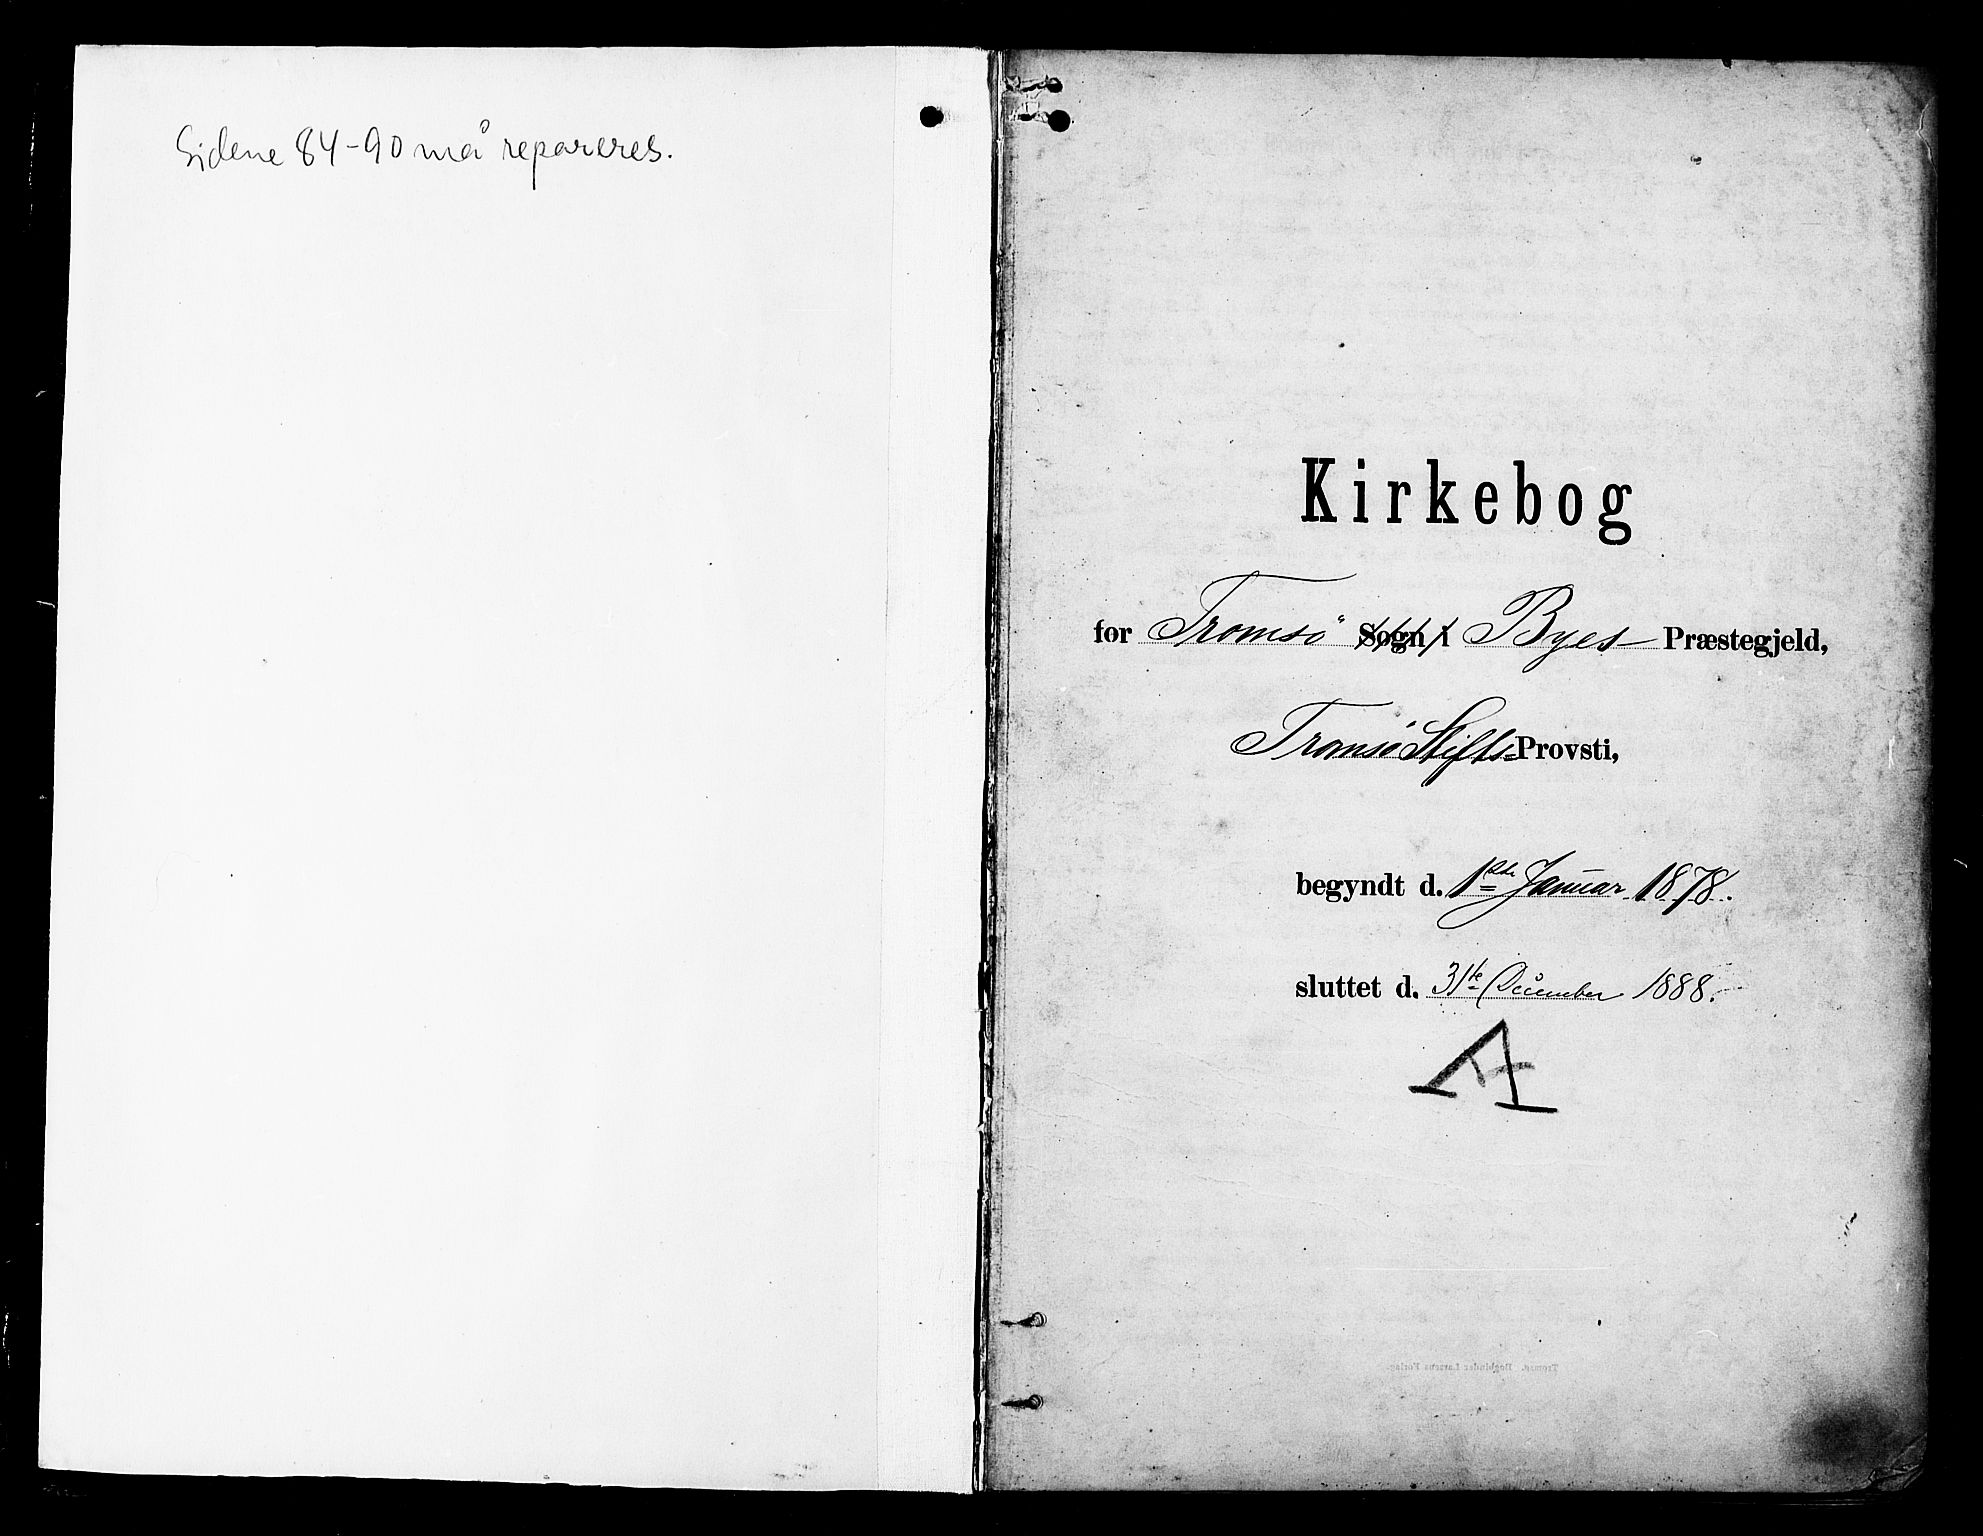 Sidene 84-90 må repareres.
Kirkebog
for Tromsö Sogn i Byes Præstegjeld,
Tromsö Stifts- Provsti,
begyndt d. 1ste Januar 1878.
sluttet d. 31te December 1888.
A
Tromsø. Bogbinder Larsens Forlag.